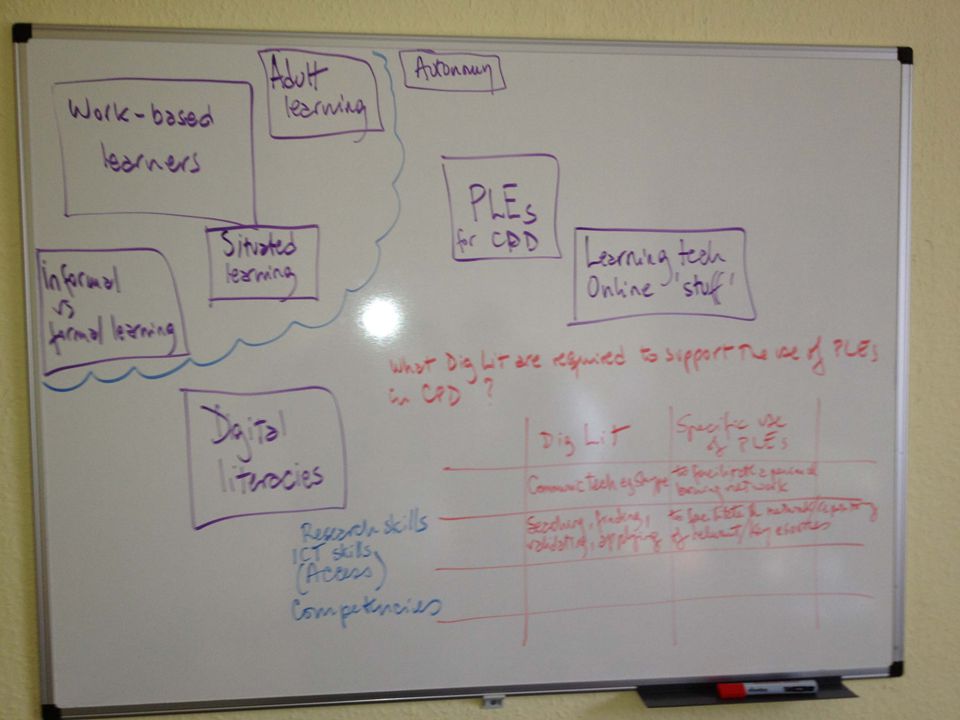 Work-based
learners
Adult
learning
Autonomy
Situated
learning
informal
vs
formal learning
PLEs
for CPD
Learning tech
Online 'stuff'
Digital
literacies
Research skills
ICT skills
(Access)
Competencies
What Dig Lit are required to support the use of PLEs
in CPD ?
Dig Lit
Specific use
of PLEs
Communic Tech eg Skype
to facilitate a personal
learning network
Searching, finding,
validating, applying
to facilitate a network/repository
of relevant/key